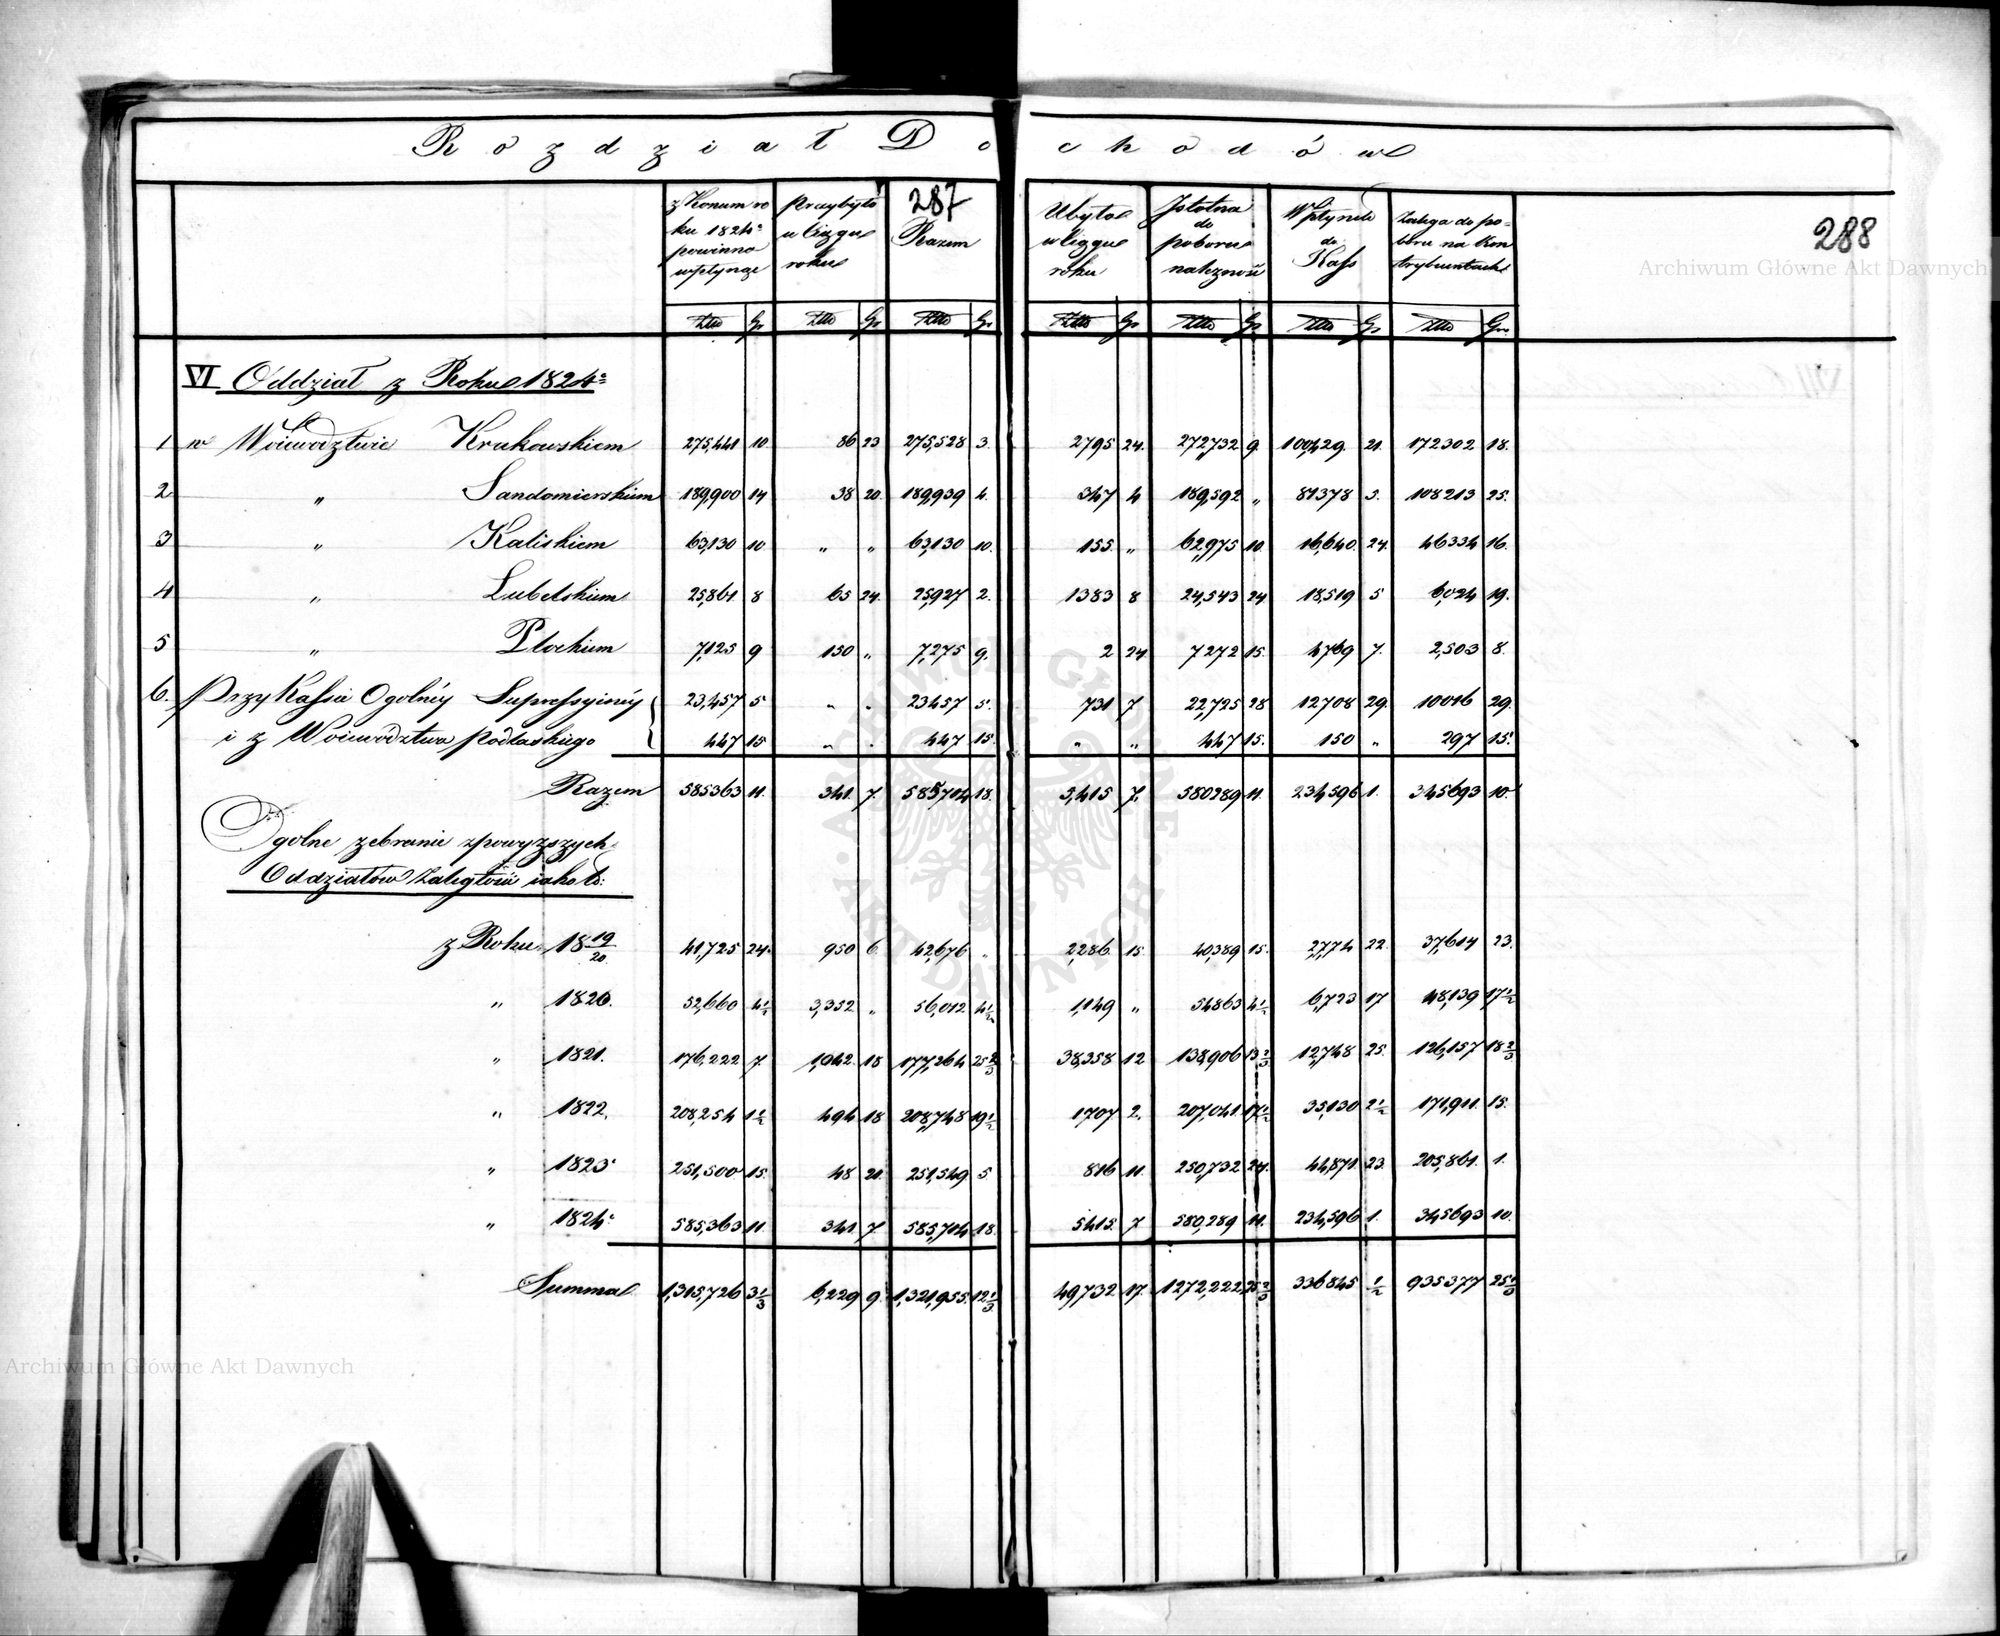 Rozdział Dochodów
z Konum ro
ku 1824o
powinno
wpłynąć
Przybyło
w ciągu
roku
287
Razem
Ubyło
w ciągu
roku
Istotna
do
poboru
należność
Wpłynęło
do
Kass
Zalega do po-
boru na Kon
trybuentach
288
Złto Gr Złto Gr Złto Gr Złto Gr Złto Gr Złto Gr Złto Gr
VI Oddział z Roku 1824o
1 w Woiewodztwie Krakowskiem 275,441 10 86 23 275,528 3. 2795 24. 272,732 9. 100,429. 21. 172302 18.
2 " Sandomierskiem 189,900 14 38 20 189,939 4. 347 4 189,592 " 81378 5. 108213 25.
3 " Kaliskiem 63,130 10 " " 63,130 10. 155. " 62,975 10. 16,640. 24. 46334 16.
4 " Lubelskiem 25,861 8 65 24. 25,927 2. 1383 8 24,543 24 18,519 5 6,024 19.
5 " Płockiem 7,125 9 150 " 7,275 9. 2 24 7272 15. 4769 7. 2,503 8.
6. Przy Kassie Ogolnéy Supressyinéy 23,457 5 " " 23457 5. 731 7 22,725 28 12708 29 10016 29.
i z Woiewodztwa Podlaskiego 447 15 " " 447 15. " " 447 15. 150 " 297 15.
Razem 585363 11. 341. 7. 585704 18. 5,415 7. 580289 11. 234596 1. 345693 10.
Ogolne zebranie z powyższych
Oddziałow Zaległości iako to:
z Roku 18 19/20 41,725 24. 950 6 42,676 " 2,286. 15. 40,389 15. 2,774 22. 37,614 23.
" 1820. 52,660 4 1/2 3,352 " 56,012 4 1/2 1,149 " 54863 4 1/2 6,723 17 48,139 17 1/2
" 1821. 176,222 7. 1,042. 18 177,264 25 2/3 38,358 12 138,906 13 2/3 12,748 25. 126,157 18 2/3
" 1822. 208,254 1 1/2 494 18 208,748 19 1/2 1707 2. 207,041. 17 1/2 35,130 2 1/2 171,911. 15.
" 1823. 251,500 15. 48 20. 251,549 5. 816 11. 250,732 24. 44,871. 23. 205,861. 1.
" 1824o 585,363 11. 341. 7 585,704 18. 5415. 7 580,289 11. 234,596 1. 345693 10.
Summa 1,315,726 3 1/3 6,229 9. 1,321,955. 12 1/3 49,732 17. 1272,222, 25 2/3 336845 1/2 935377 25 1/3
Archiwum Główne Akt Dawnych
Archiwum Główne Akt Dawnych
ARCHIWUM GŁÓWNE AKT DAWNYCH